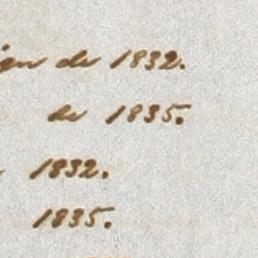 de 1832.
de 1835.
1832.
1835.